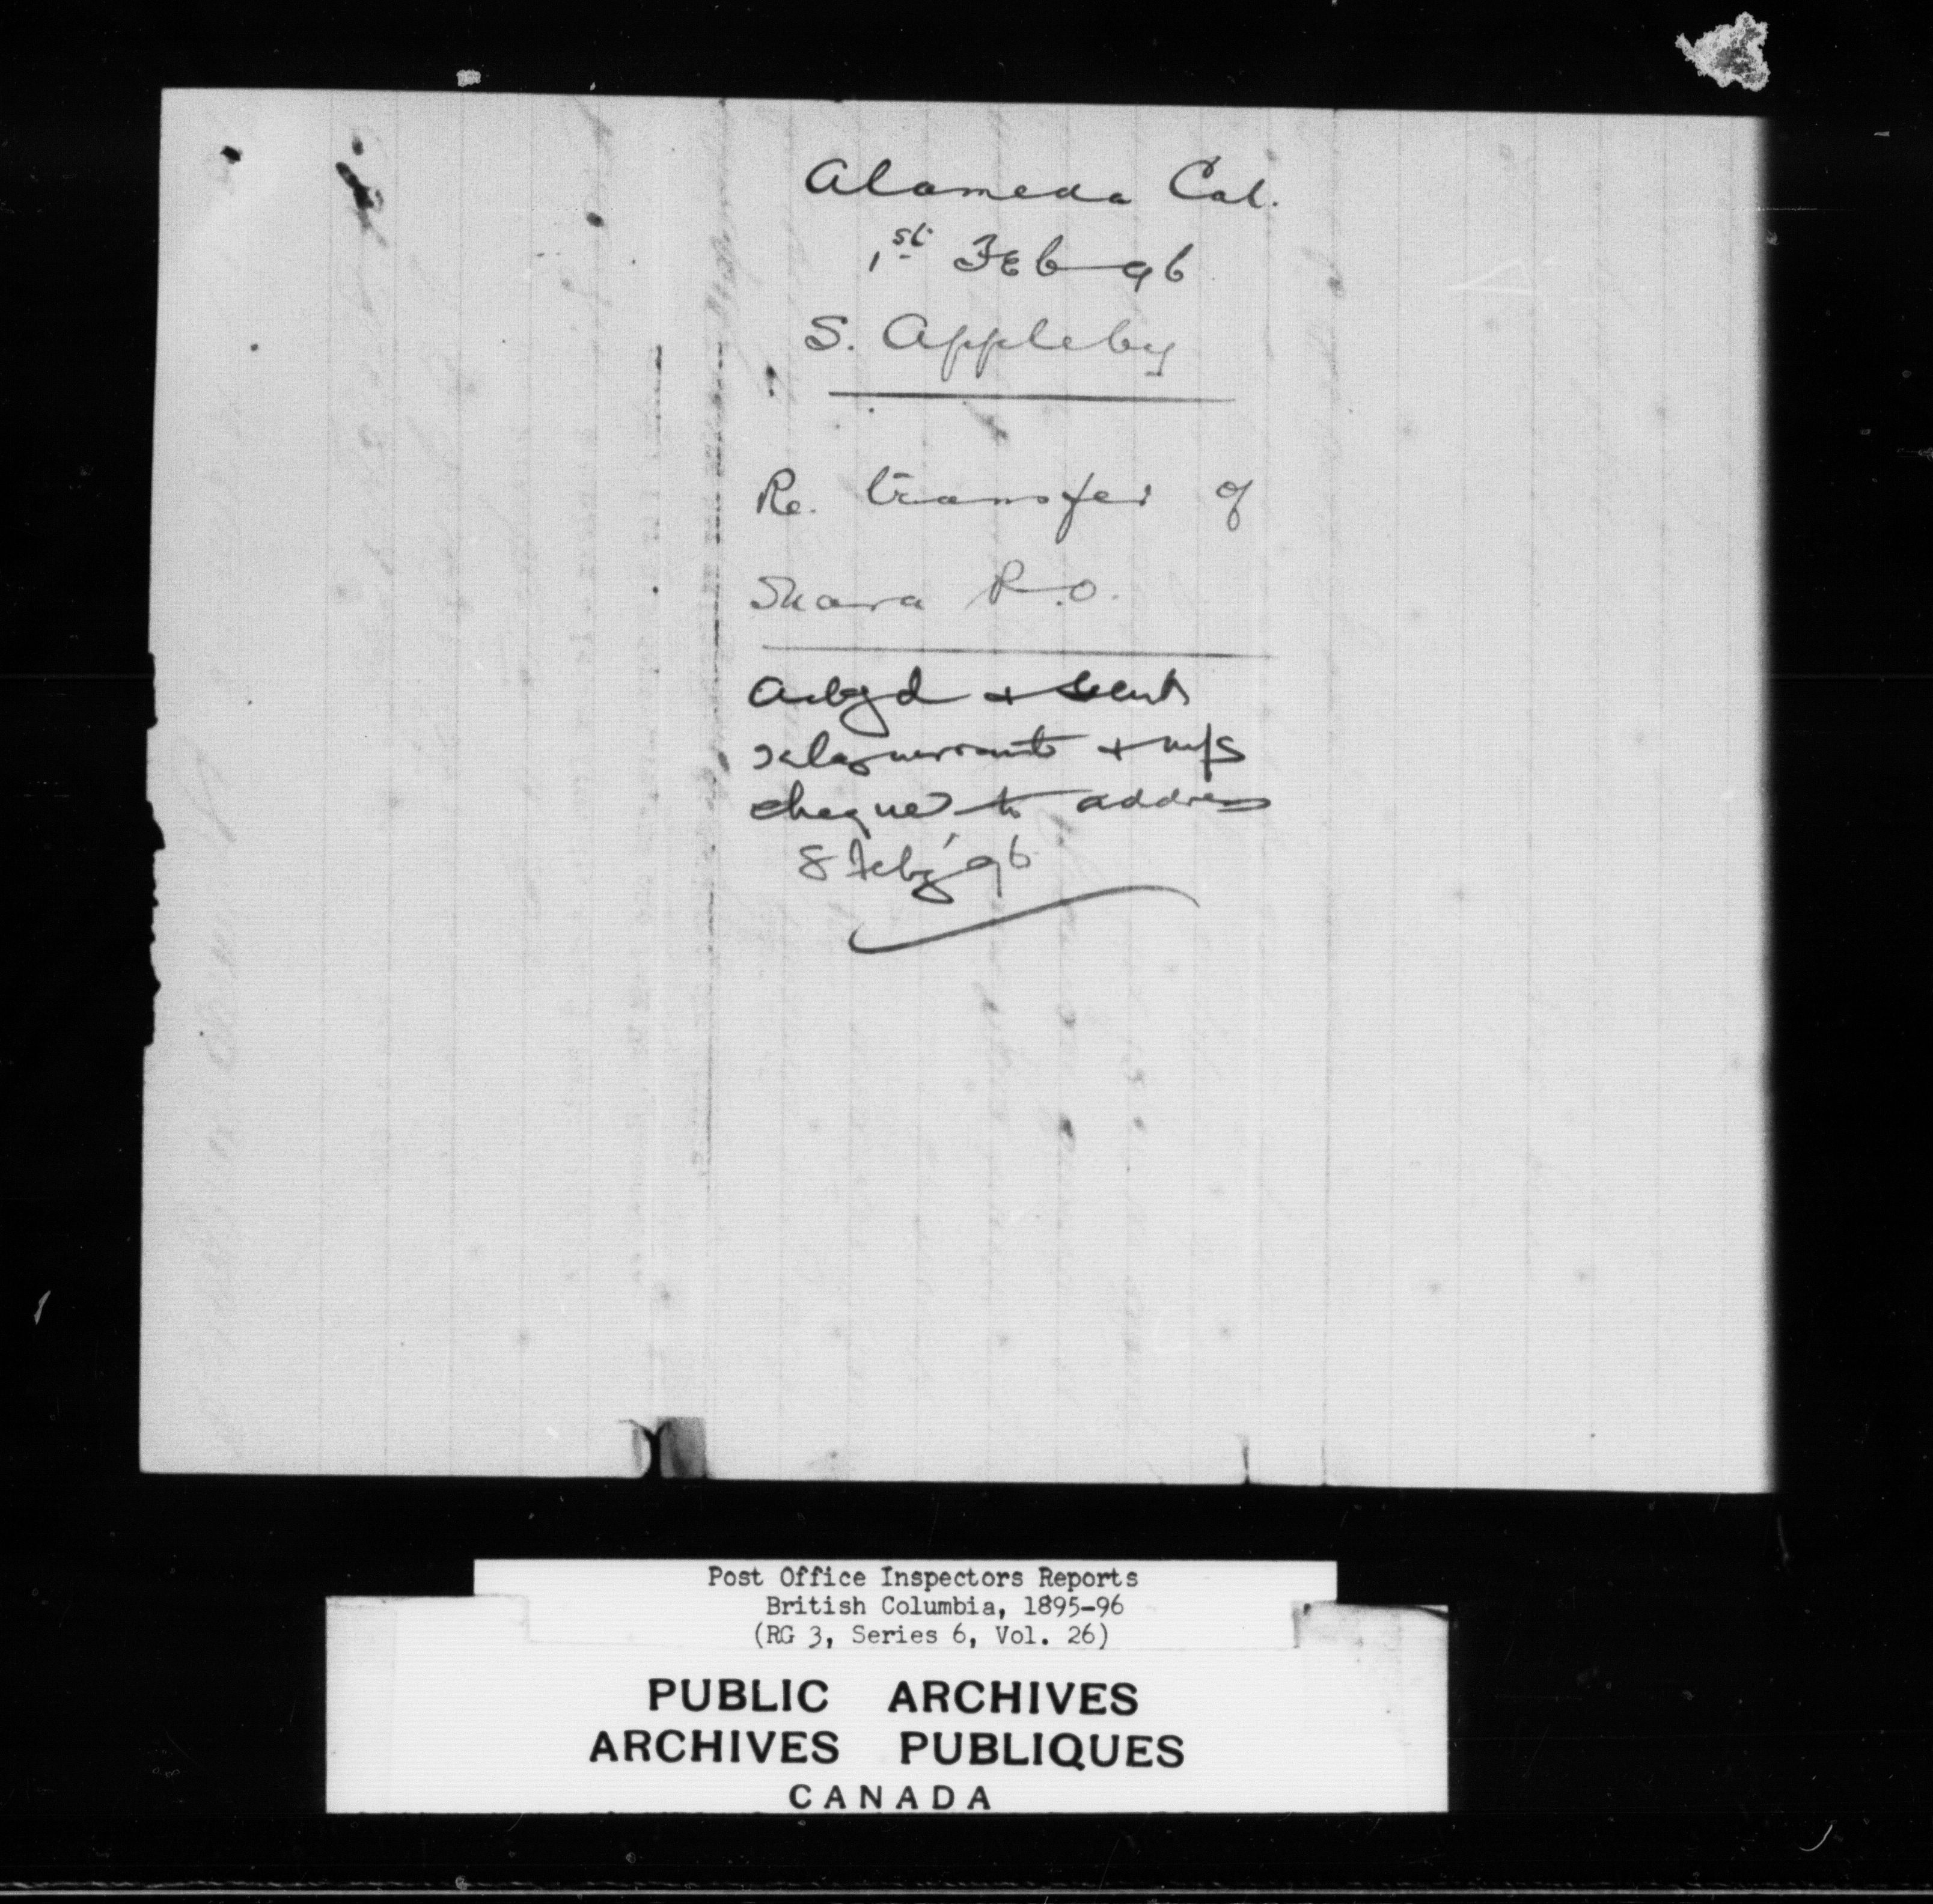 Alameda Cal.
1st Feb 96
S. Appleby
Re. transfer of
Shara P.O.
Ackgd + sent
warrant + m/s
cheque to address
8 Feby '96
Post Office Inspectors Reports
British Columbia, 1895-96
(RG 3, Series 6, Vol. 26)
PUBLIC ARCHIVES
ARCHIVES PUBLIQUES
CANADA